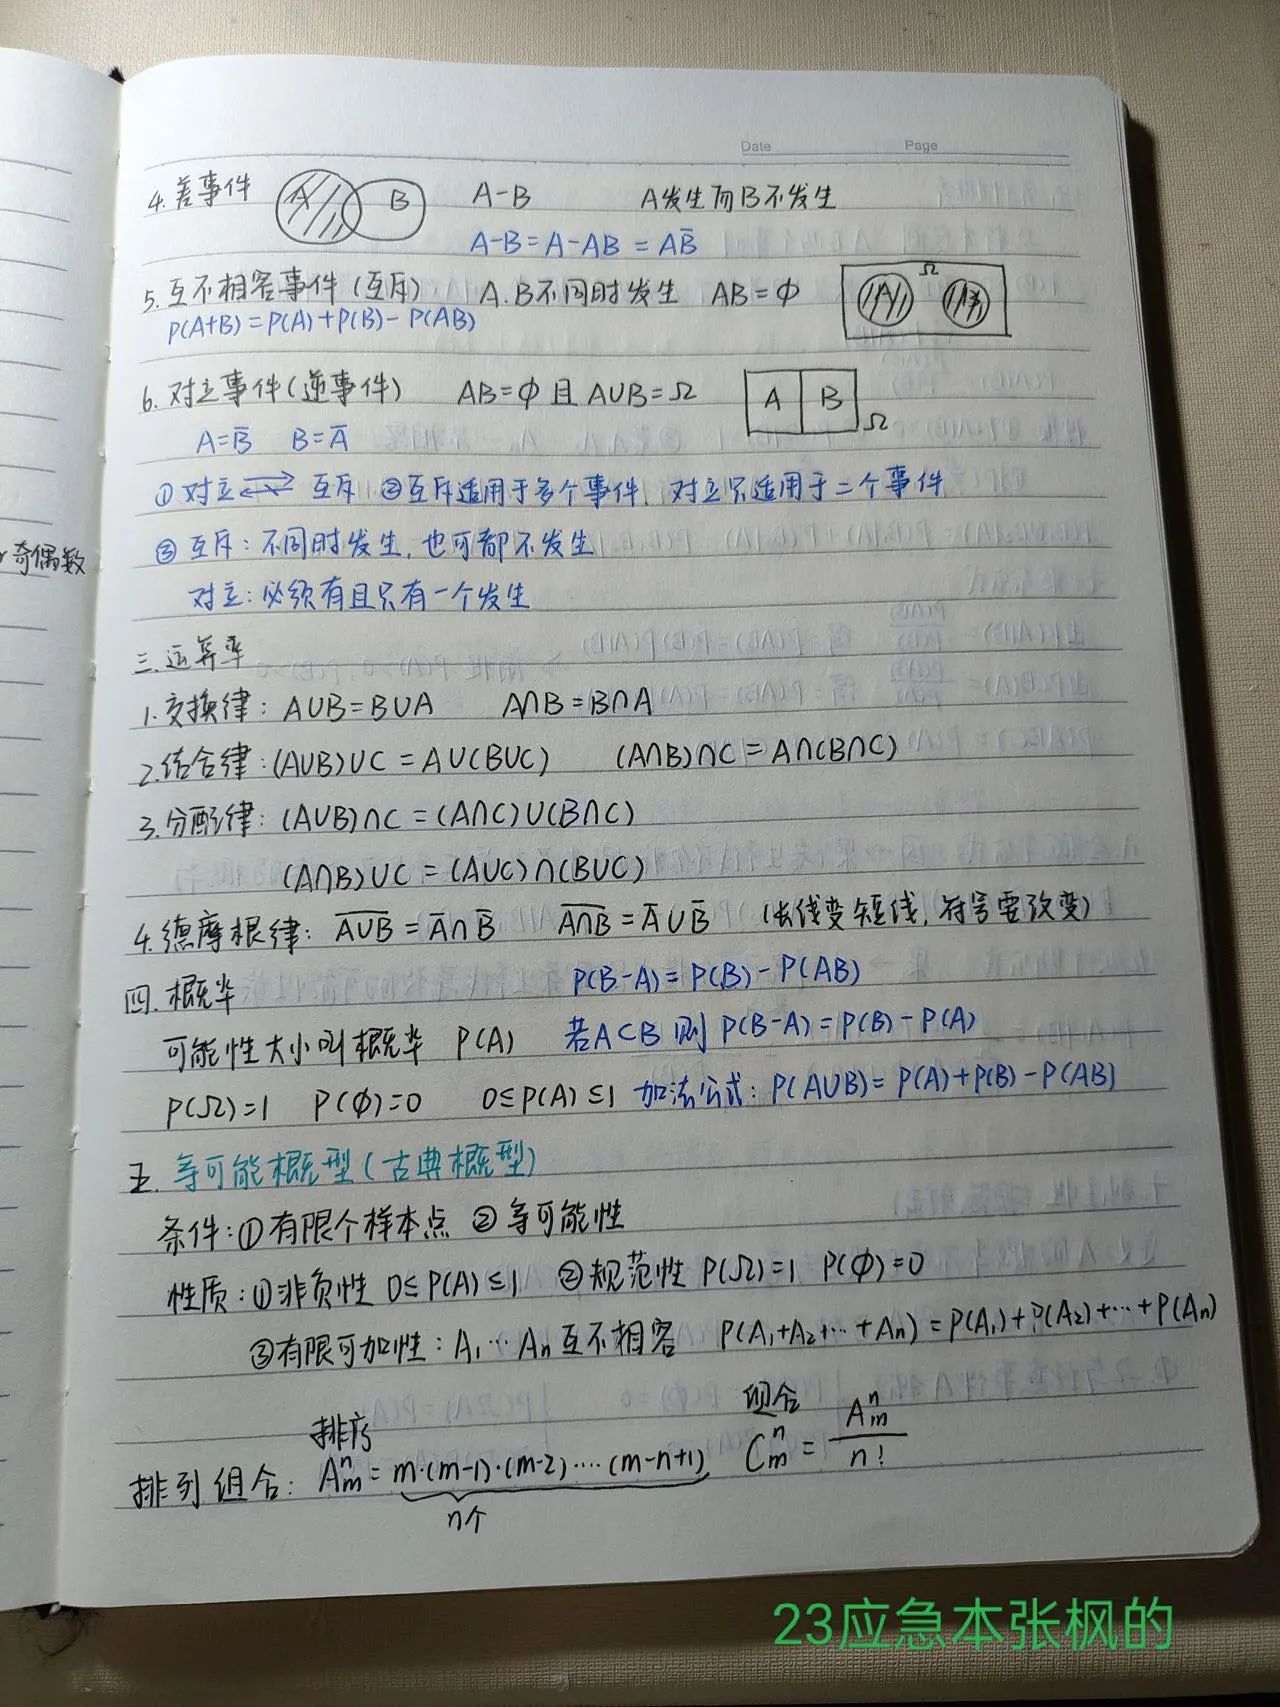 Date Page
4.差事件 A B A-B A发生而B不发生
A-B=A-AB=AB̅
5.互不相容事件(互斥) A.B不同时发生 AB=Φ Ω A
P(A+B)=P(A)+P(B)-P(AB)
6.对立事件(逆事件) AB=Φ且A∪B=Ω A B Ω
A=B̅ B=A̅
①对立⇄互斥 ②互斥适用于多个事件,对立只适用于二个事件
③互斥:不同时发生,也可都不发生
奇偶数
对立:必须有且只有一个发生
三.运算率
1.交换律: A∪B=B∪A A∩B=B∩A
2.结合律:(A∪B)∪C=A∪(B∪C) (A∩B)∩C=A∩(B∩C)
3.分配律: (A∪B)∩C=(A∩C)∪(B∩C)
(A∩B)∪C=(A∪C)∩(B∪C)
4.德摩根律: A̅∪̅B̅=A̅∩B̅ A̅∩̅B̅=A̅∪B̅ (长线变短线,符号要改变)
四.概率 P(B-A)=P(B)-P(AB)
可能性大小叫概率 P(A) 若A⊂B则P(B-A)=P(B)-P(A)
P(Ω)=1 P(Φ)=0 0≤P(A)≤1 加法公式: P(A∪B)=P(A)+P(B)-P(AB)
五.等可能概型(古典概型)
条件:①有限个样本点 ②等可能性
性质:①非负性 0≤P(A)≤1 ②规范性 P(Ω)=1 P(Φ)=0
③有限可加性: A₁…Aₙ互不相容 P(A₁+A₂+…+Aₙ)=P(A₁)+P(A₂)+…+P(Aₙ)
排序 组合
排列组合: Aₘⁿ=m·(m-1)·(m-2)····(m-n+1) Cₘⁿ=Aₘⁿ/n!
n个
23应急本张枫的